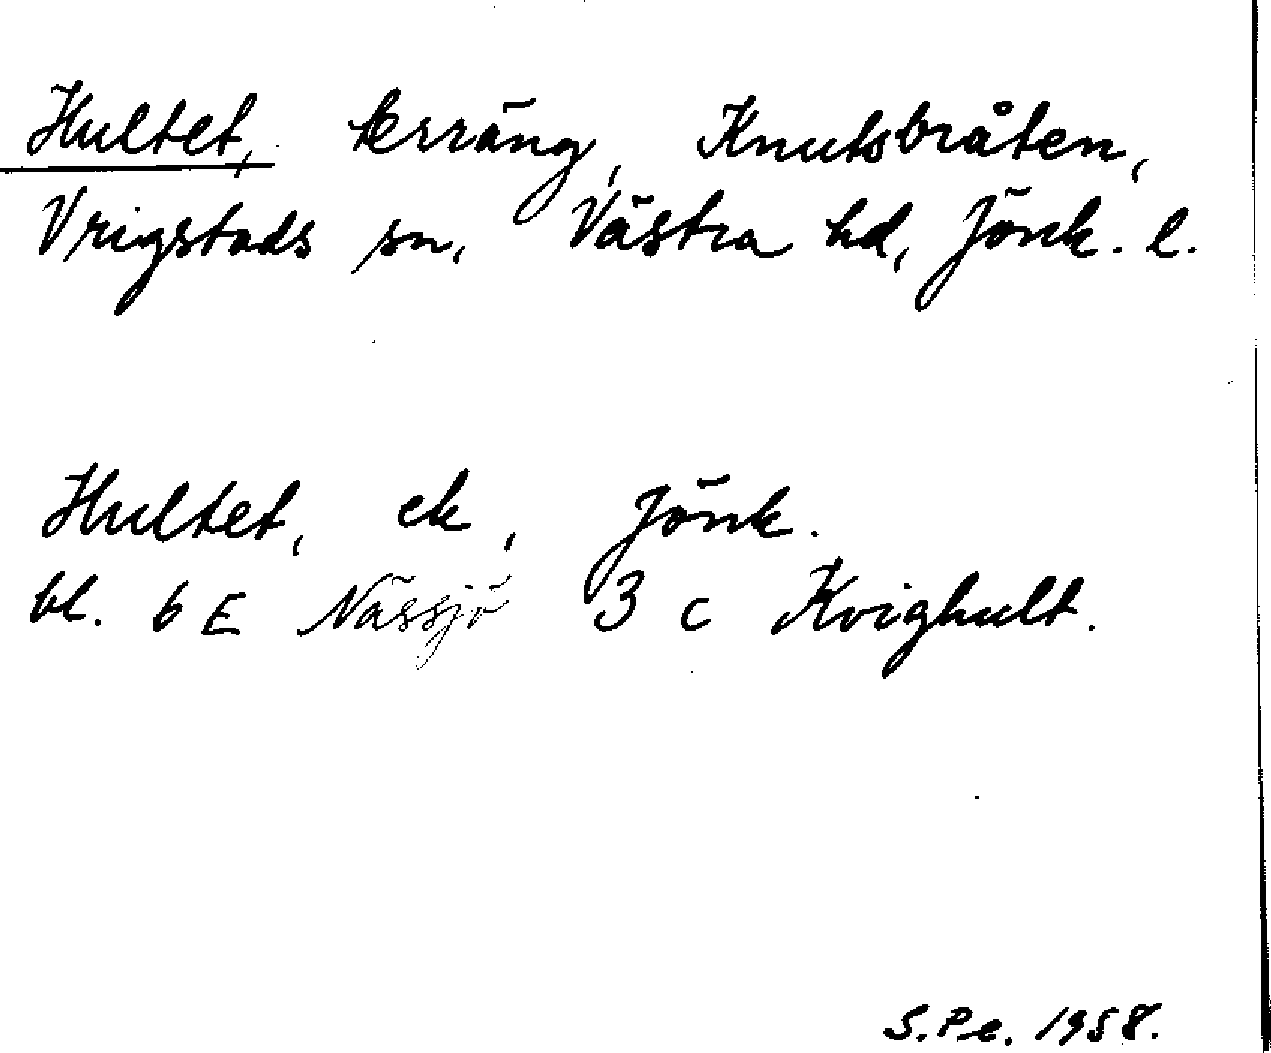 Hultet, terräng, Knutsbråten,
Vrigstads sn, Västra hd, Jönk. l.
Hultet, ek, Jönk.
bl. 6 E Nässjö 3 c Kvighult.
S.Pe. 1958.